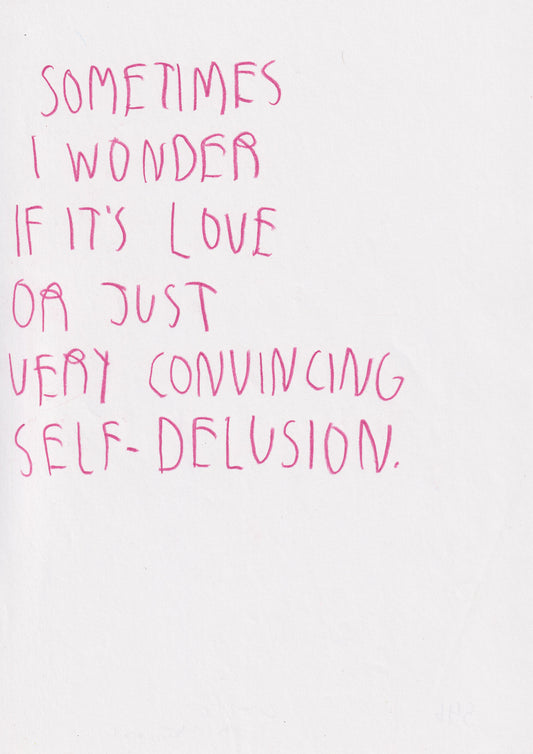 SOMETIMES
I WONDER
IF IT'S LOVE
OR JUST
VERY CONVINCING
SELF-DELUSION.